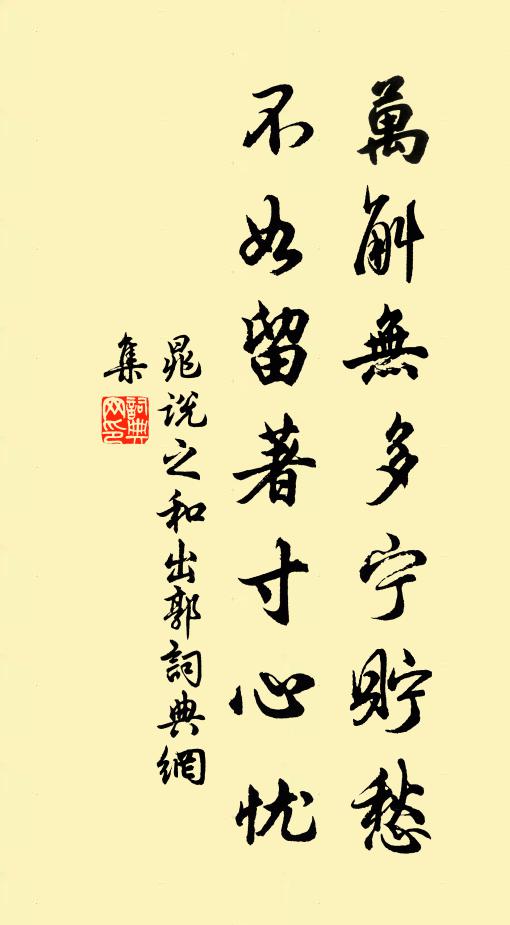 萬斛無多宁貯愁
不如留著寸心忧
晁說之和出郭詞典網
集
詞典網印